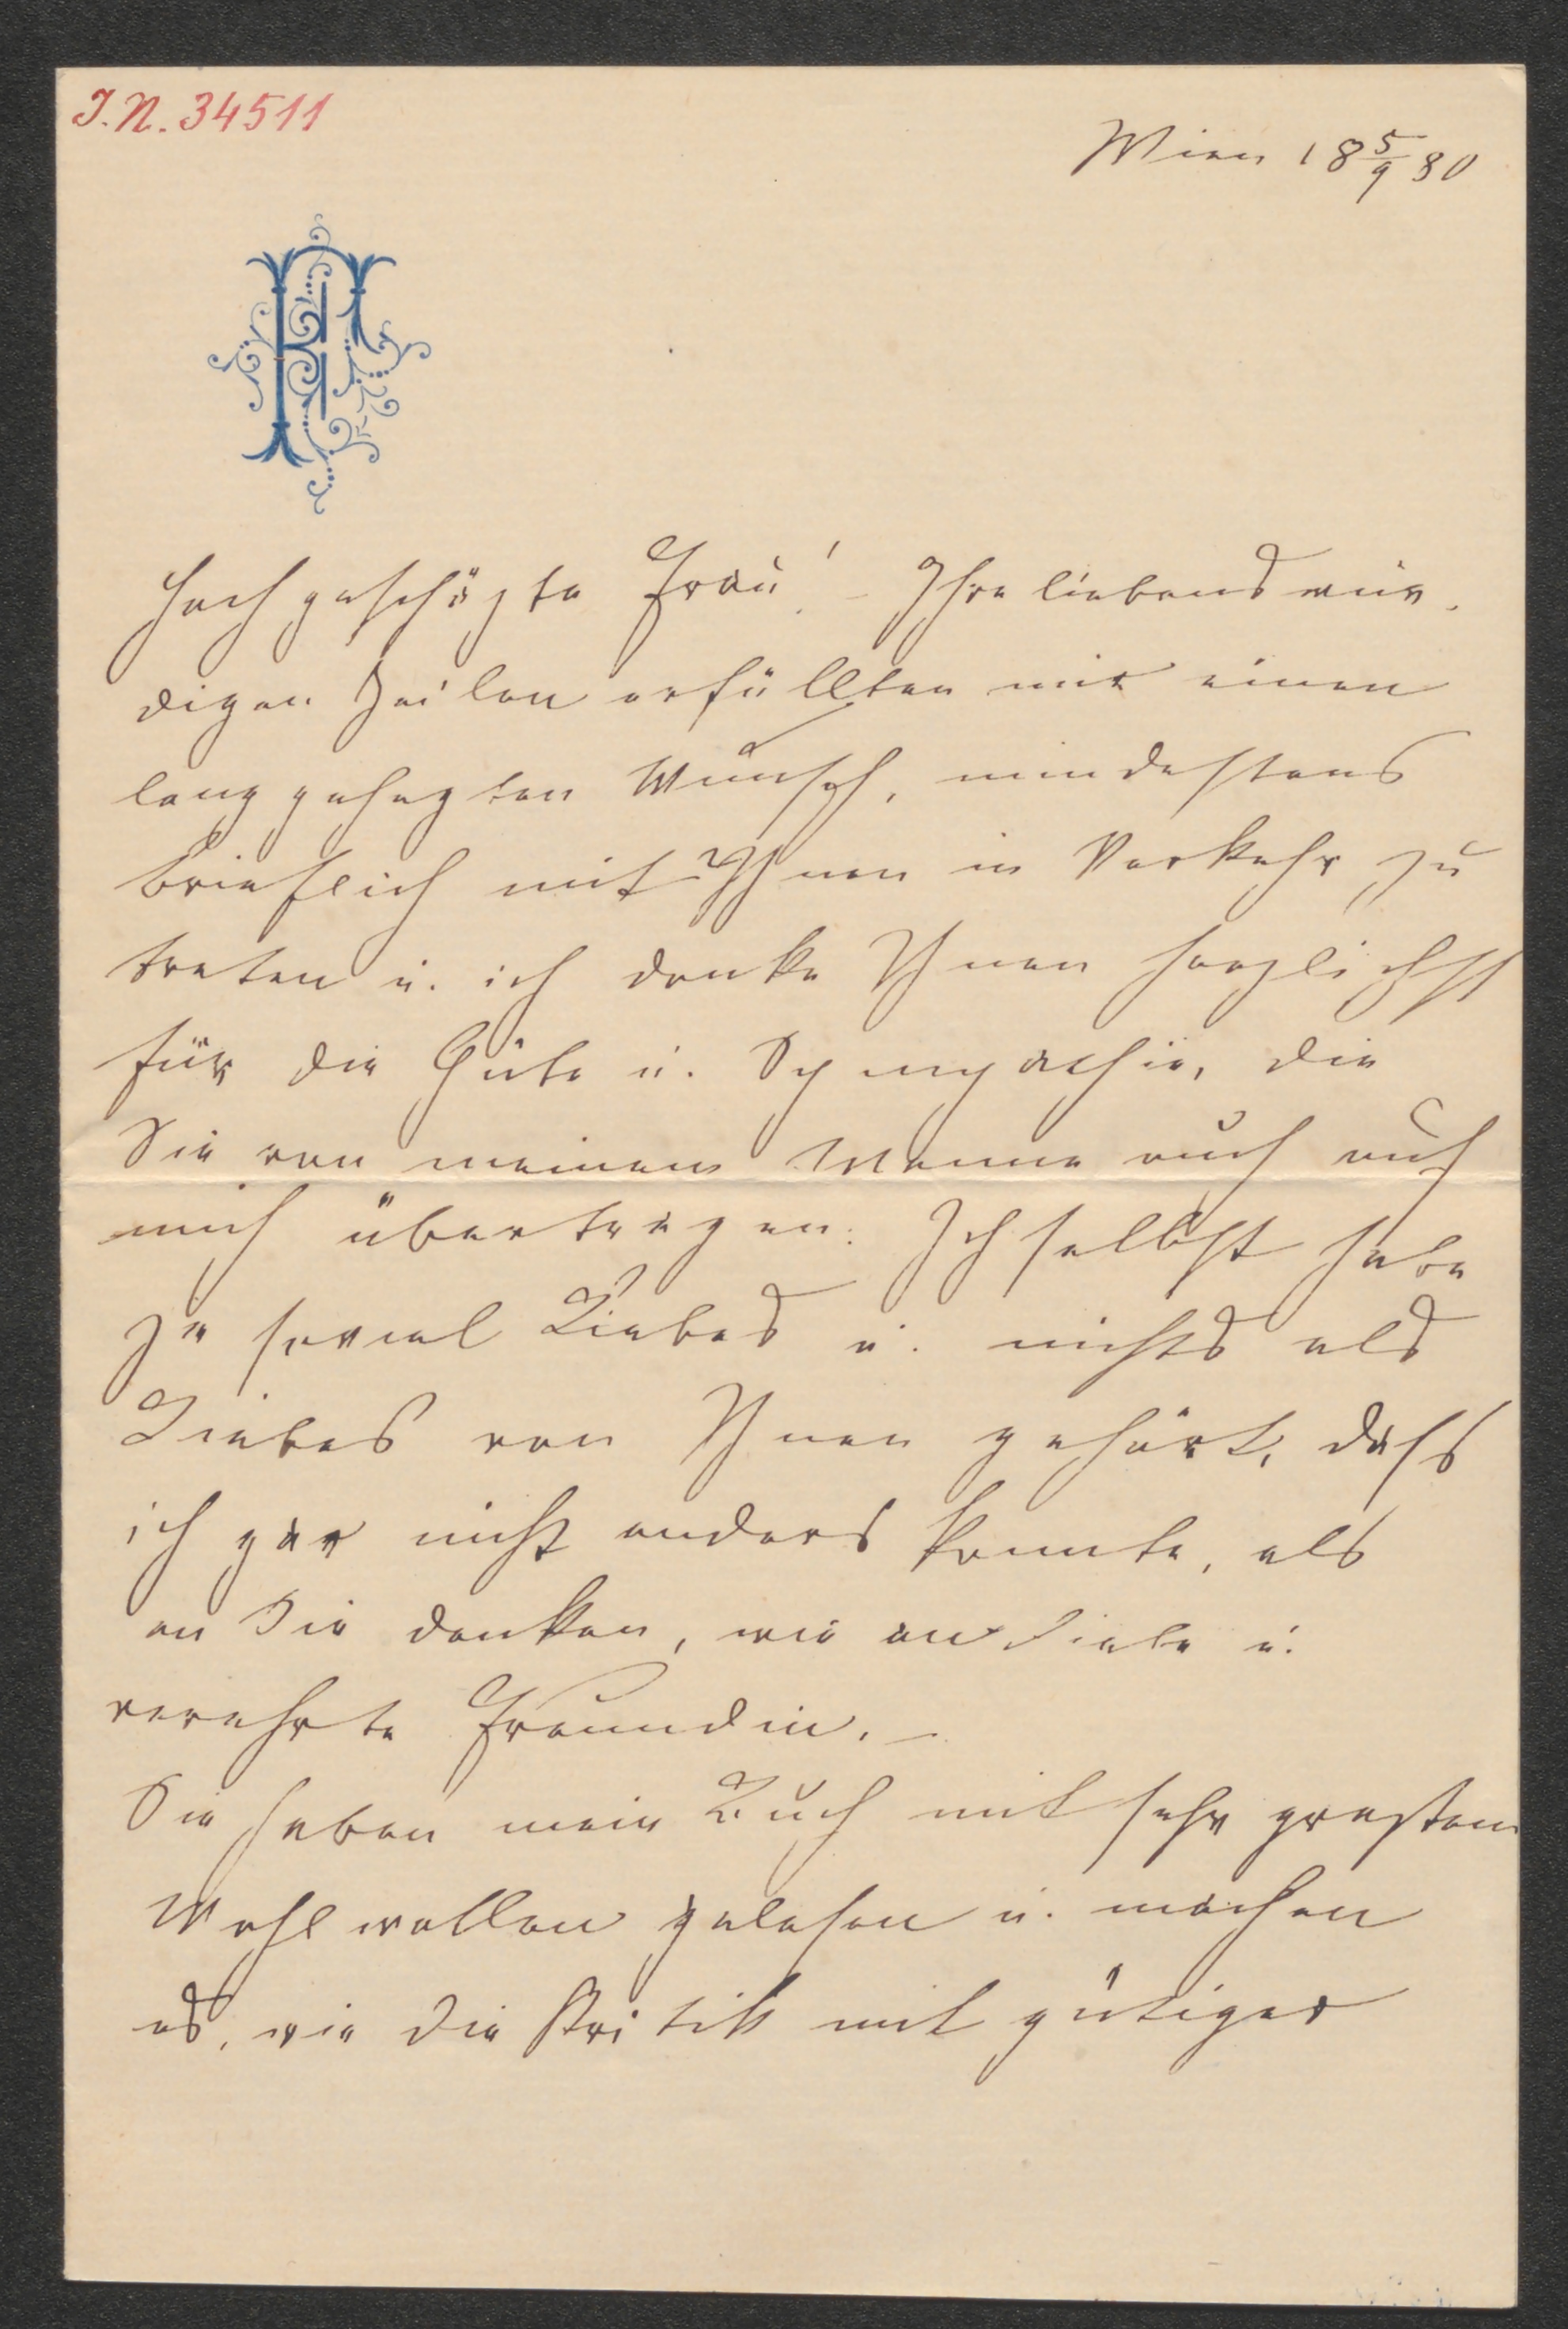 I.N. 34511
Wien 18 5/9 80
Hochgeschäzte Frau! – Ihre liebenswür-
digen Zeilen erfüllten mir einen
lang gehegten Wunsch, mindestens
brieflich mit Ihnen in Verkehr zu
treten u. ich danke Ihnen herzlichst
für die Güte u. Sympathie, die
Sie von meinem Manne auch auf
mich übertragen. Ich selbst habe
ja soviel Liebes u. nichts als
Liebes von Ihnen gehört, dass
ich gar nicht anders konnte, als
an Sie denken, wie an liebe u.
verehrte Freundin. –
Sie haben mein Buch mit sehr grossem
Wohlwollen gelesen u. machen
es, wie die Kritik mit gütiger